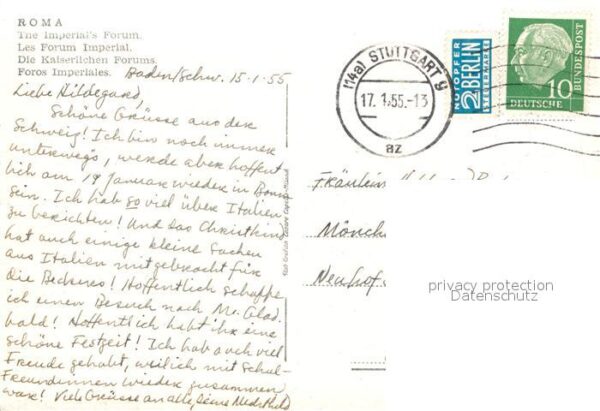 ROMA
The Imperial's Forum.
Les Forum Imperial.
Die Kaiserlichen Forums.
Foros Imperiales.
Baden/Schw. 15.1.55
Liebe Hildegard,
Schöne Grüsse aus der
Schweiz! Ich bin noch immer
unterwegs, werde aber hoffent
lich am 19 Januar wieder in Bonn
sein. Ich hab so viel über Italien
zu berichten! Und das Christkind
hat auch einige kleine Sachen
aus Italien mitgebracht für
die Beckers! Hoffentlich schaffe
ich einen Besuch nach M. Glad.
bald! Hoffentlich habt ihr eine
schöne Festzeit! Ich hab auch viel
Freude gehabt, weil ich mit Schul-
Freundinnen wieder zusammen
war! Viele Grüsse an alle, Deine
(14a) STUTTGART 9
17.1.55.-13
az
NOTOPFER
2 BERLIN
STEUERMARKE
DEUTSCHE
BUNDESPOST
10
Fräulein
Mönch
Neuhof
privacy protection
Datenschutz